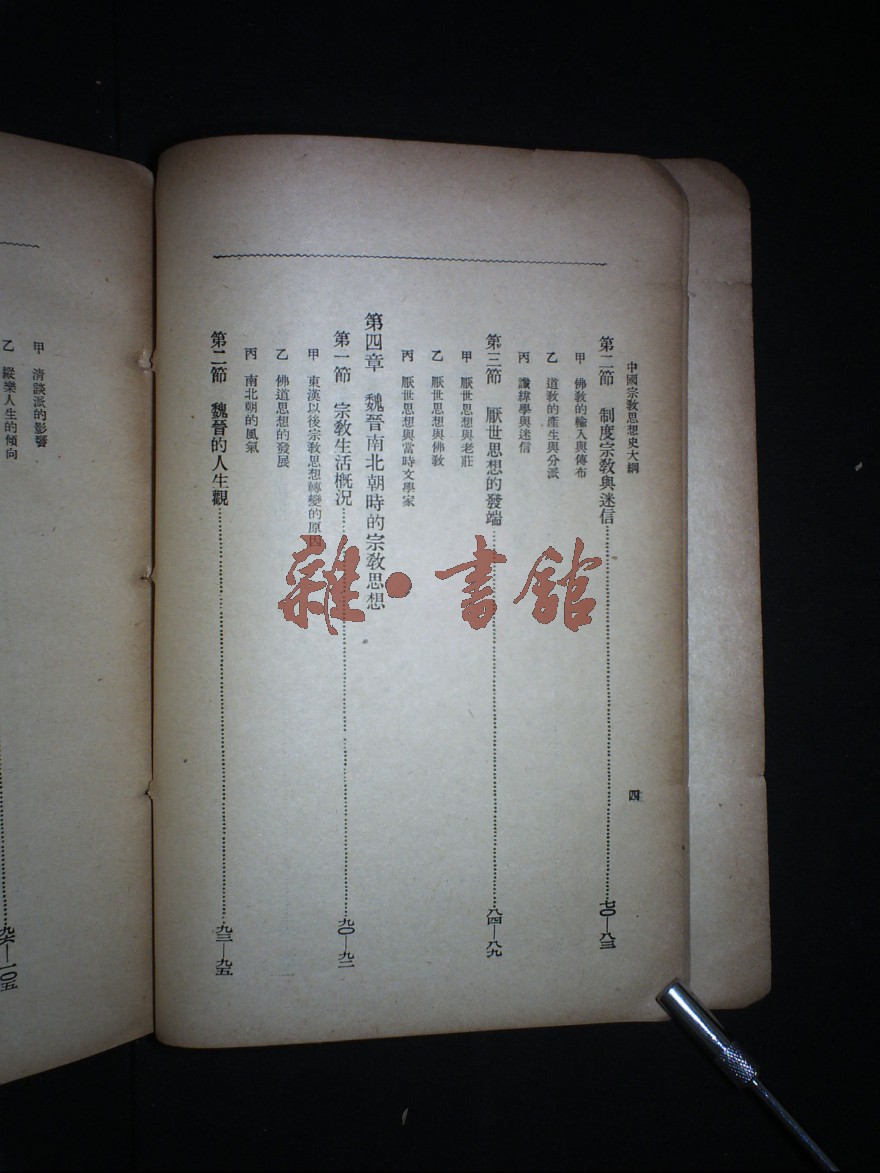 中國宗教思想史大綱
四
第二節 制度宗教與迷信……七〇—八三
甲 佛教的輸入與傳布
乙 道教的產生與分派
丙 讖緯學與迷信
第三節 厭世思想的發端……八四—八九
甲 厭世思想與老莊
乙 厭世思想與佛教
丙 厭世思想與當時文學家
第四章 魏晉南北朝時的宗教思想
第一節 宗教生活概況……九〇—九二
甲 東漢以後宗教思想轉變的原因
乙 佛道思想的發展
丙 南北朝的風氣
第二節 魏晉的人生觀……九三—九五
甲 清談派的影響
乙 縱樂人生的傾向
……九六—一〇五
雜·書館